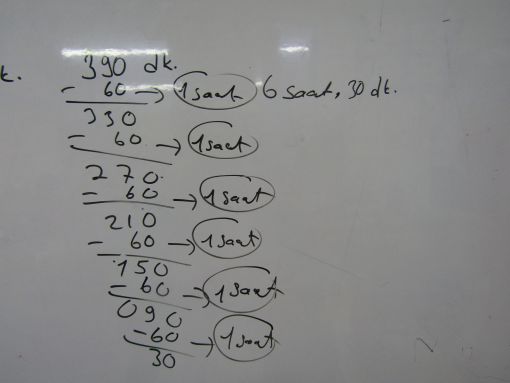 k.
390 dk.
- 60 → 1 saat 6 saat, 30 dk.
330
- 60 → 1 saat
270
- 60 → 1 saat
210
- 60 → 1 saat
150
- 60 → 1 saat
090
- 60 → 1 saat
30